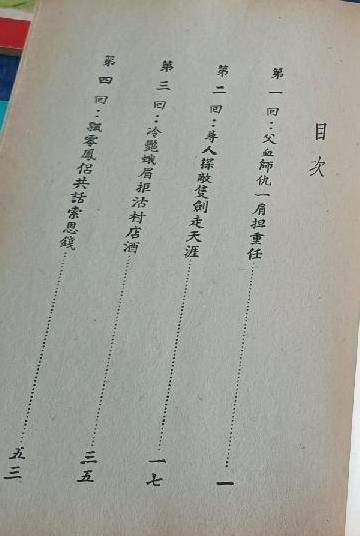 目次
第一回：父血師仇一肩担重任……一
第二回：尋人探敵隻劍走天涯……一七
第三回：冷艷蛾眉拒沽村店酒……三五
第四回：飄零鳳侶共話索恩錢……五三